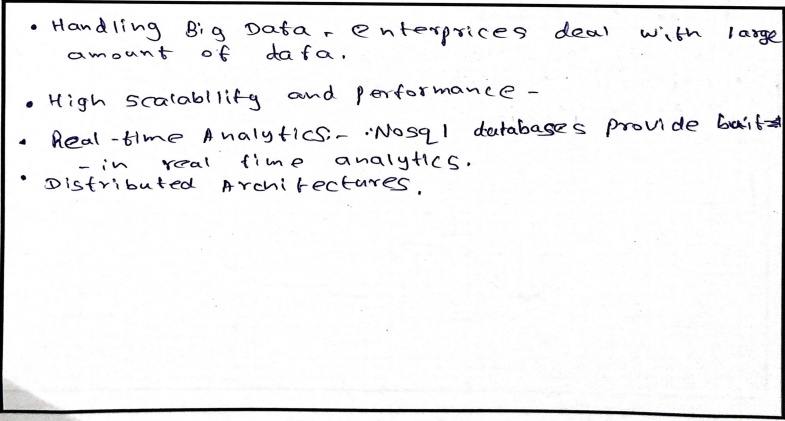 • Handling Big Data - enterprices deal with large
amount of data.
• High scalability and performance -
• Real-time Analytics:- Nosql databases provide built
- in real time analytics.
• Distributed Architectures.